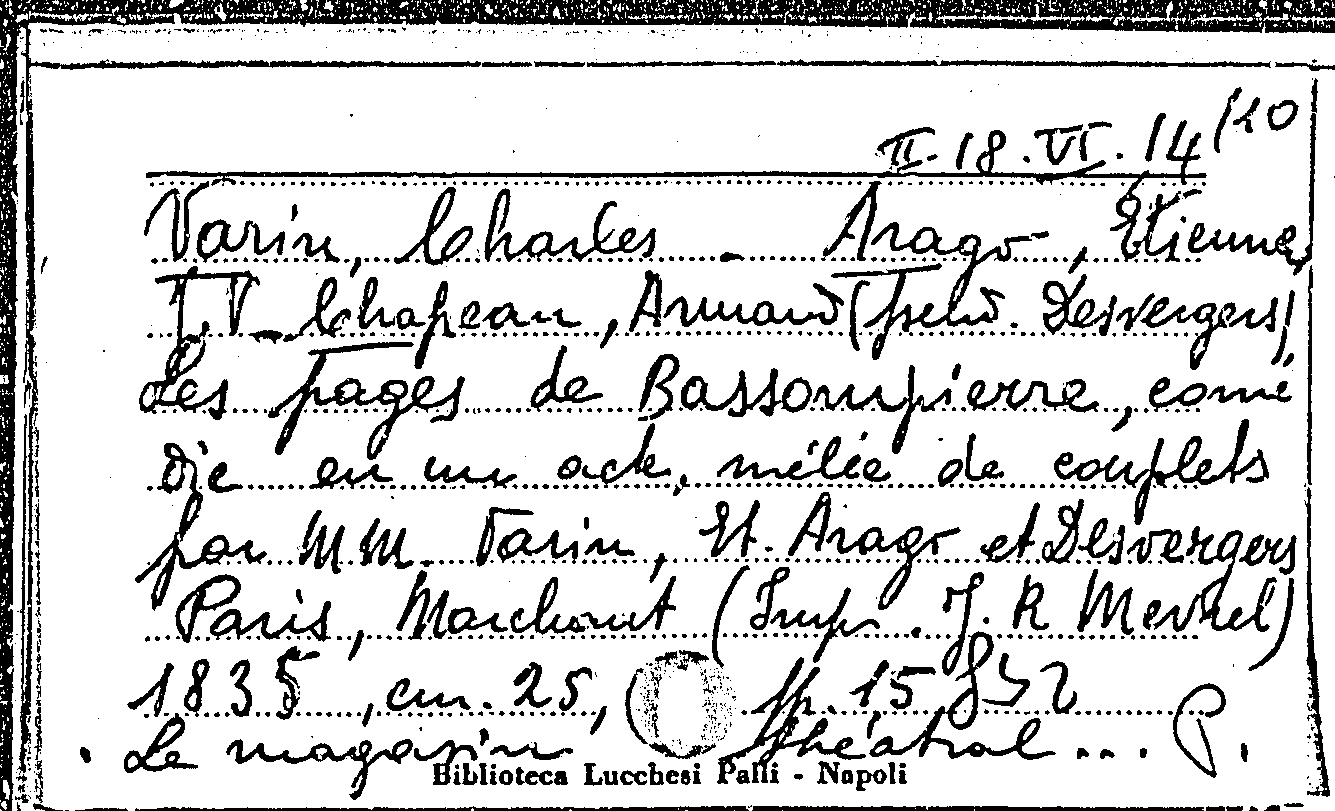 II.18.VI.14(20
Varin, Charles - Arago, Etienne,
J. V - Chapeau, Armand (pseud. Desvergers)
Les pages de Bassompierre, comé
die en un acte, mêlée de couplets
par MM. Varin, Et. Arago et Desvergers
Paris, Marchant (Imp. J. R Mevrel)
1835, cm. 25, pp. 15
Le magasin théatral ... P.
Biblioteca Lucchesi Palli - Napoli